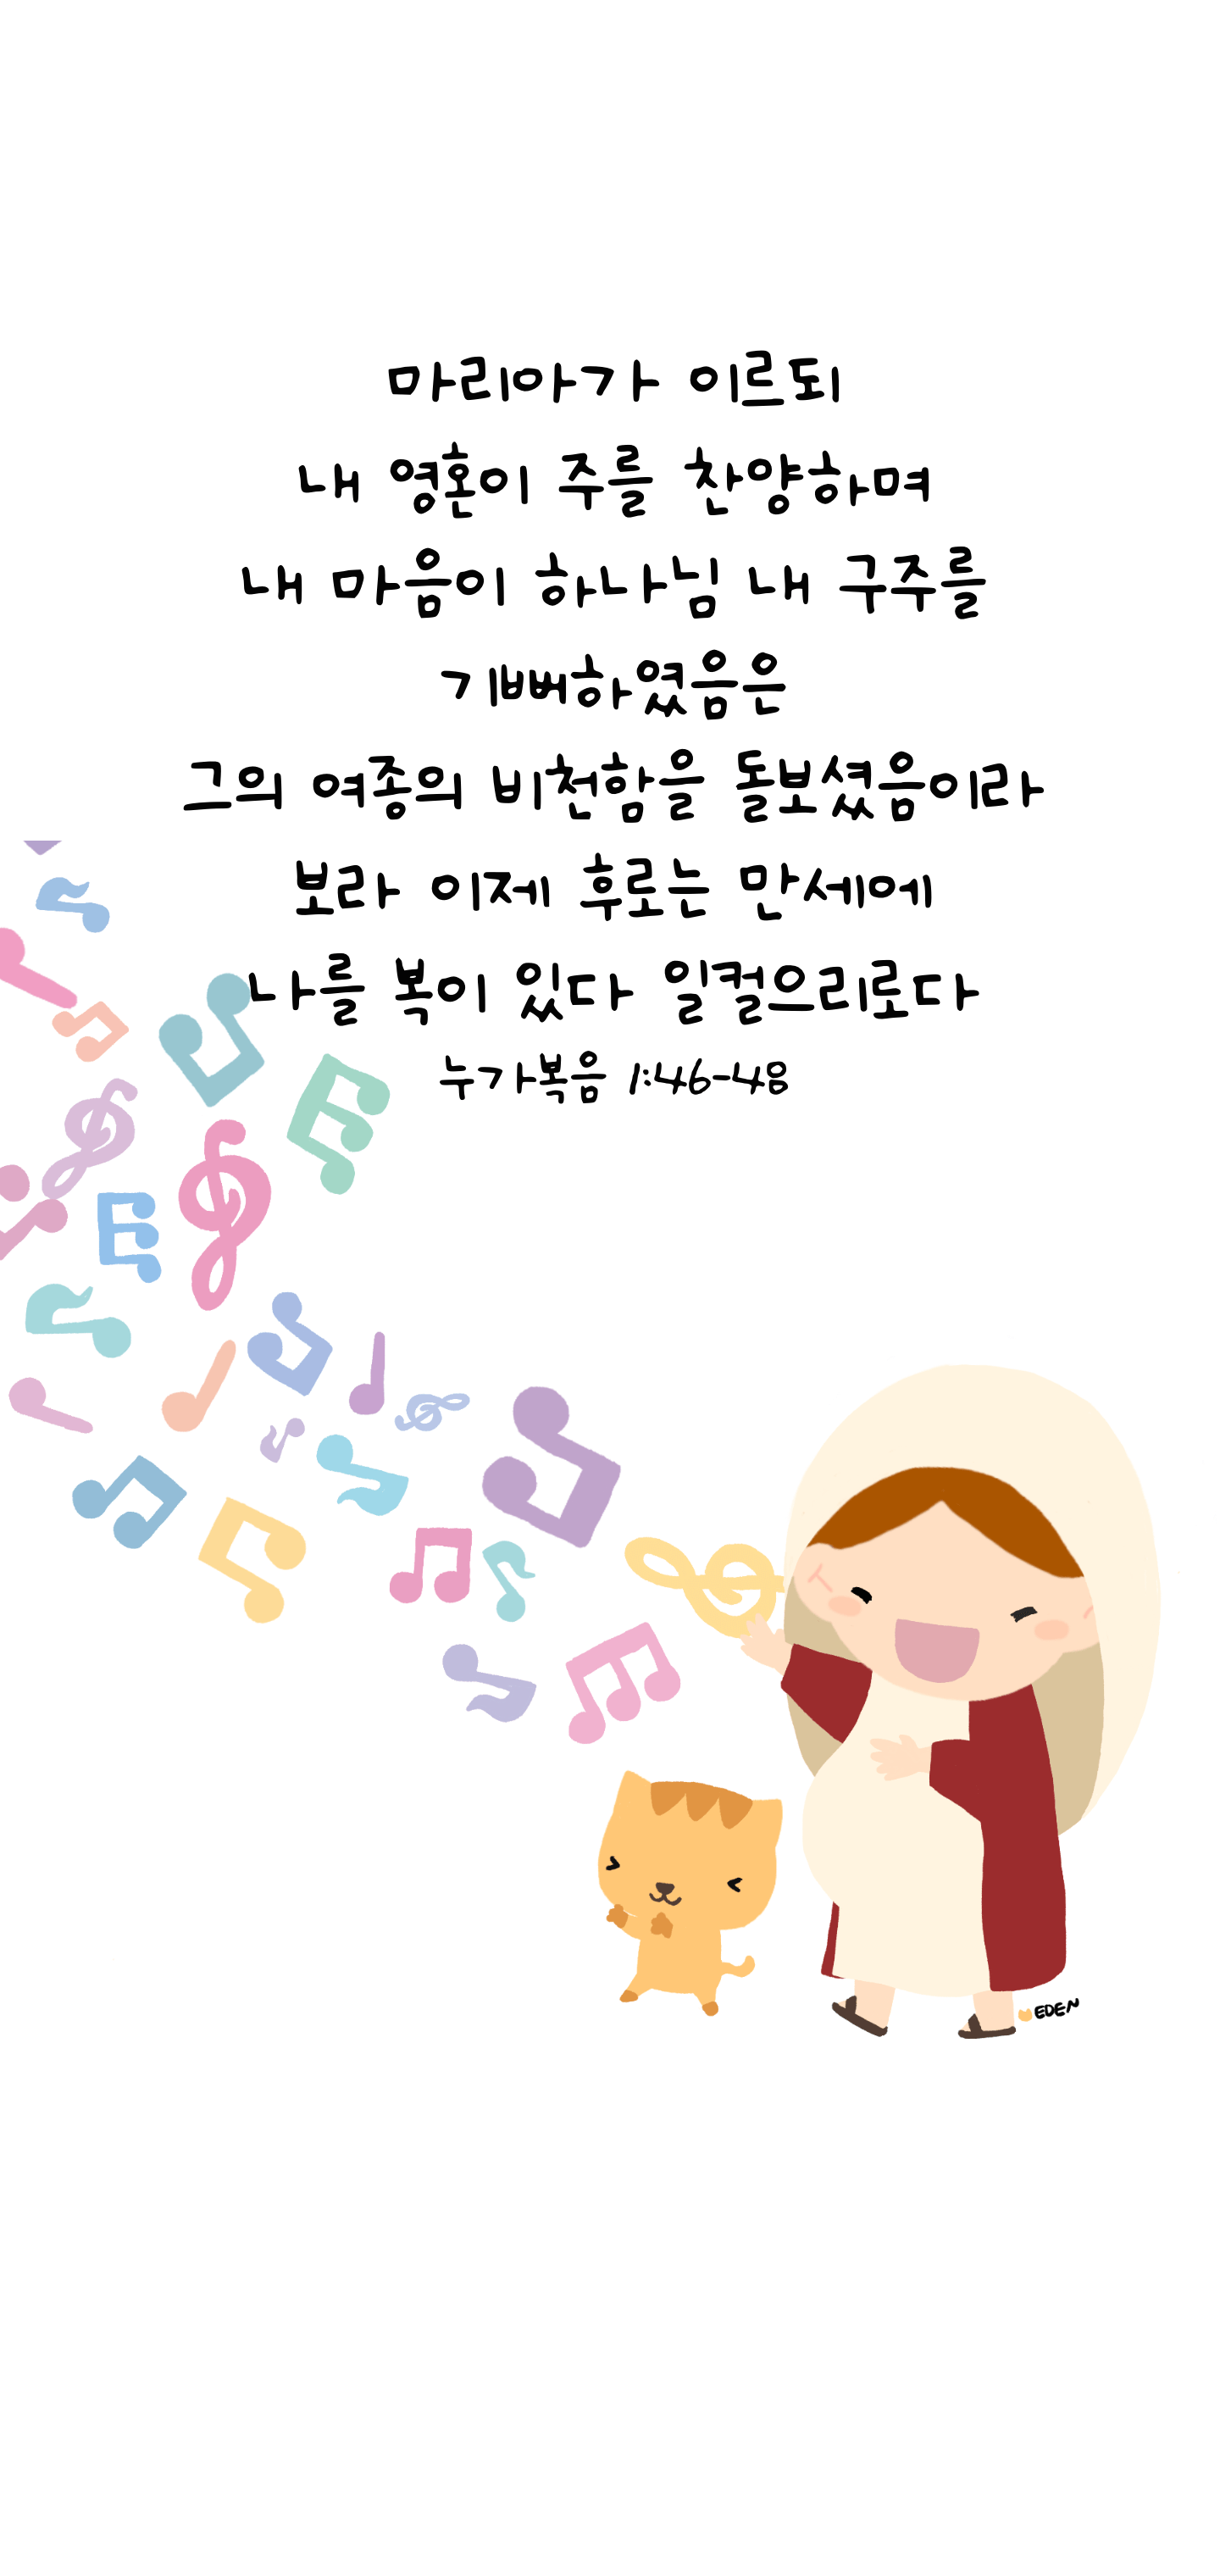 마리아가 이르되
내 영혼이 주를 찬양하며
내 마음이 하나님 내 구주를
기뻐하였음은
그의 여종의 비천함을 돌보셨음이라
보라 이제 후로는 만세에
나를 복이 있다 일컬으리로다
누가복음 1:46-48
EDEN